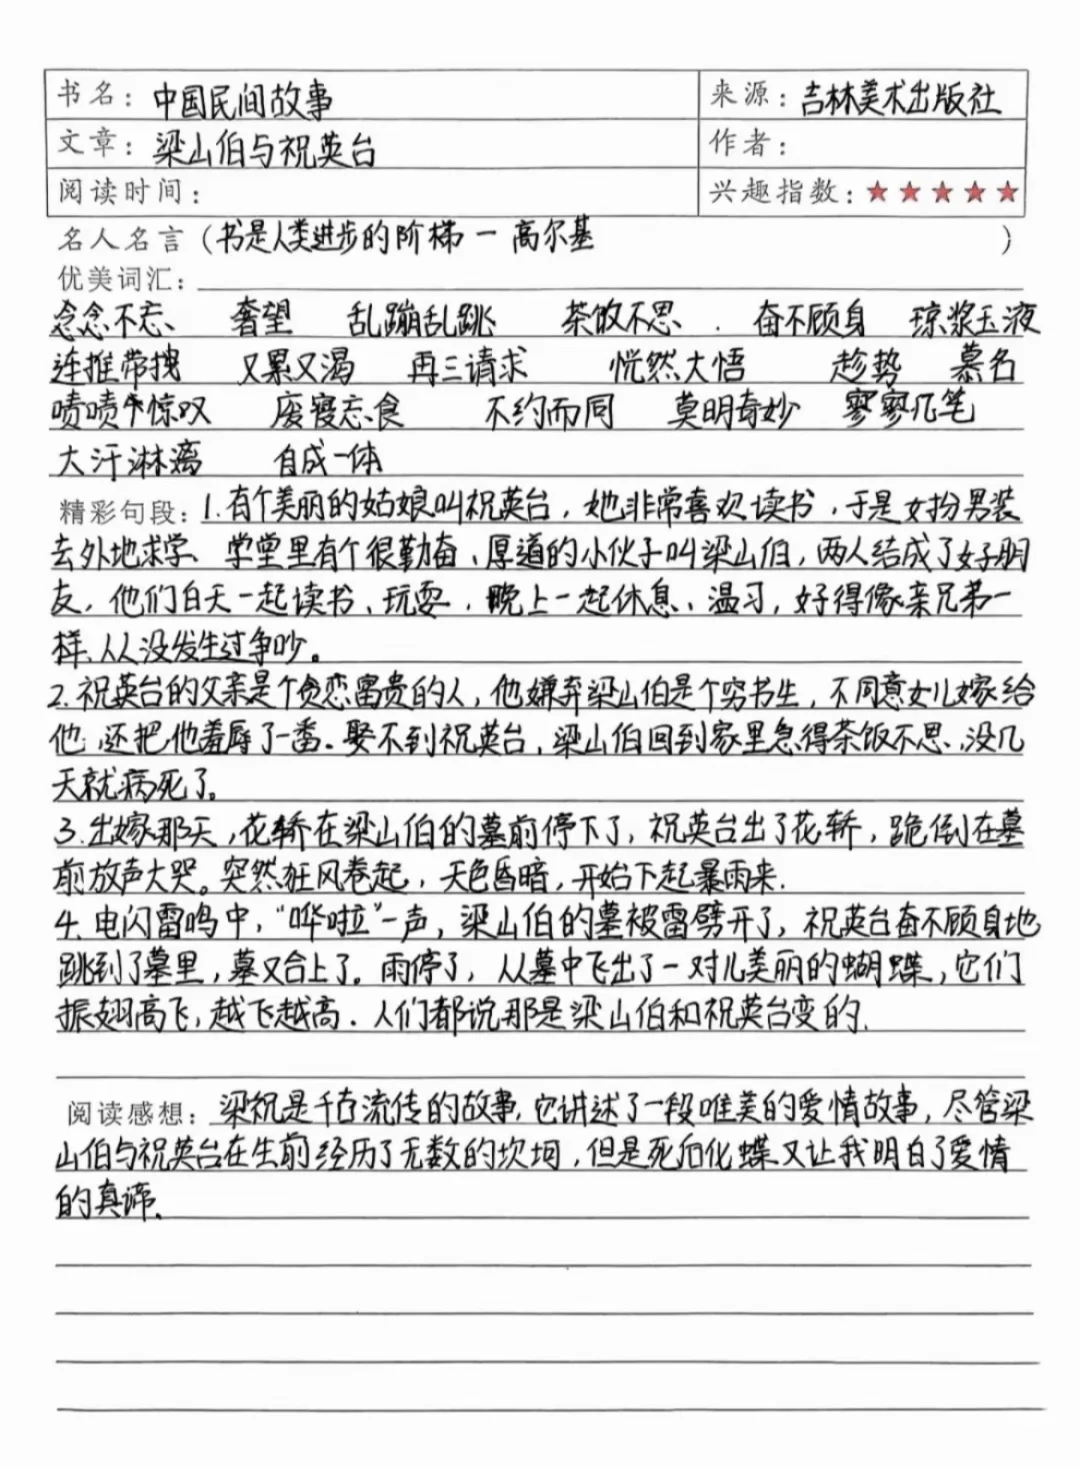 书名：中国民间故事 来源：吉林美术出版社
文章：梁山伯与祝英台 作者：
阅读时间： 兴趣指数：★★★★★
名人名言（书是人类进步的阶梯一高尔基 ）
优美词汇：
念念不忘、 奢望 乱蹦乱跳 茶饭不思 . 奋不顾身 琼浆玉液
连推带拽 又累又渴 再三请求 恍然大悟 趁势 慕名
啧啧惊叹 废寝忘食 不约而同 莫明奇妙 寥寥几笔
大汗淋漓 自成一体
精彩句段：1.有个美丽的姑娘叫祝英台，她非常喜欢读书，于是女扮男装
去外地求学、学堂里有个很勤奋、厚道的小伙子叫梁山伯，两人结成了好朋
友，他们白天一起读书、玩耍，晚上一起休息、温习，好得像亲兄弟一
样、从没发生过争吵。
2.祝英台的父亲是个贪恋富贵的人，他嫌弃梁山伯是个穷书生，不同意女儿嫁给
他，还把他羞辱了一番.娶不到祝英台，梁山伯回到家里急得茶饭不思，没几
天就病死了。
3.出嫁那天，花轿在梁山伯的墓前停下了，祝英台出了花轿，跪倒在墓
前放声大哭。突然狂风卷起，天色昏暗，开始下起暴雨来.
4.电闪雷鸣中，“哗啦”一声，梁山伯的墓被雷劈开了，祝英台奋不顾身地
跳到了墓里，墓又合上了。雨停了，从墓中飞出了一对儿美丽的蝴蝶，它们
振翅高飞，越飞越高.人们都说那是梁山伯和祝英台变的.
阅读感想：梁祝是千古流传的故事，它讲述了一段唯美的爱情故事，尽管梁
山伯与祝英台在生前经历了无数的坎坷，但是死后化蝶又让我明白了爱情
的真谛.